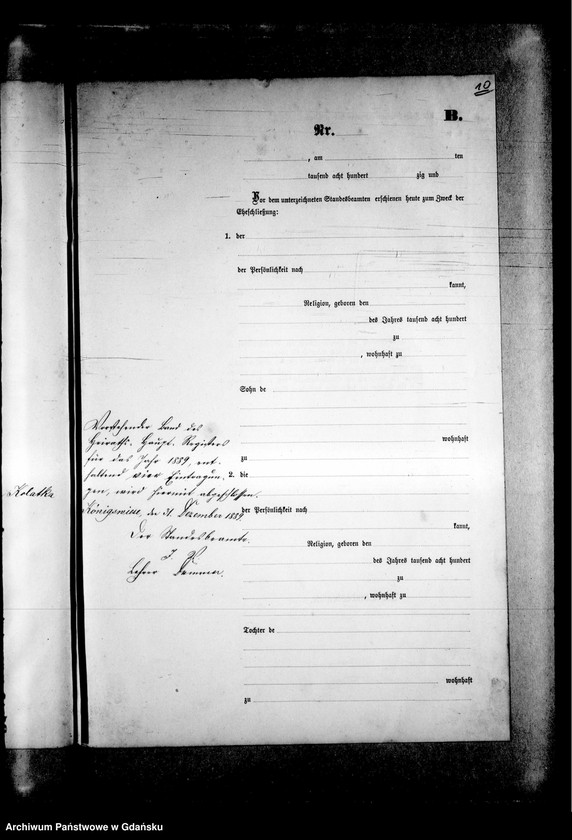 10
B.
Nr.
, am ten
tausend acht hundert zig und
Vor dem unterzeichneten Standesbeamten erschienen heute zum Zweck der
Eheschließung:
1. der
der Persönlichkeit nach
kannt,
Religion, geboren den
des Jahres tausend acht hundert
zu
, wohnhaft zu
Sohn de
wohnhaft
zu
2. die
der Persönlichkeit nach
kannt,
Religion, geboren den
des Jahres tausend acht hundert
zu
, wohnhaft zu
Tochter de
wohnhaft
zu
Vorstehender Band des
Heiraths-Haupt-Registers
für das Jahr 1889, ent-
haltend vier Eintragun-
gen, wird hiermit abgeschlossen.
Königswiese, den 31. Dezember 1889.
Der Standesbeamte.
Lehrer
Kolatka
Archiwum Państwowe w Gdańsku